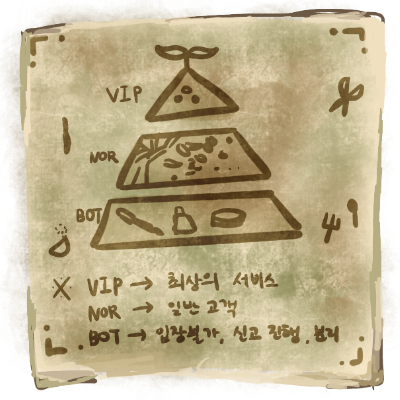 VIP
NOR
BOT
VIP → 최상의 서비스
NOR → 일반 고객
BOT → 입장불가, 신고 진행, 분리